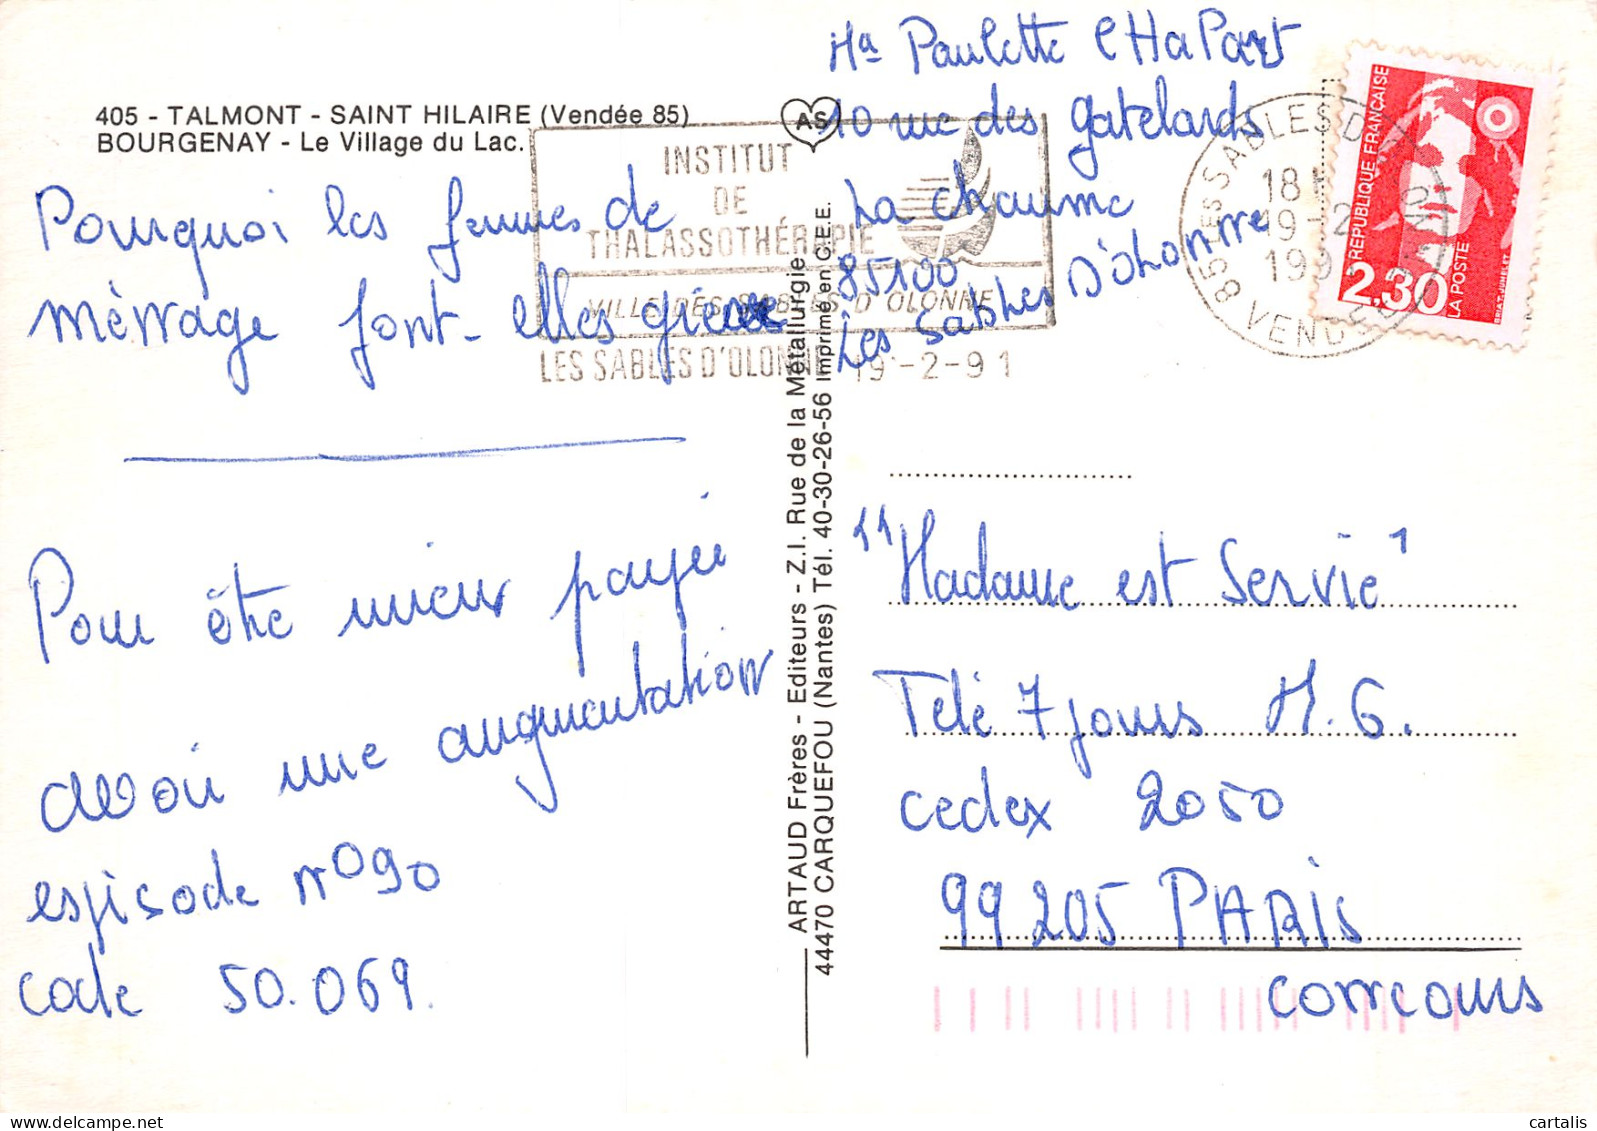 405 - TALMONT - SAINT HILAIRE (Vendée 85)
BOURGENAY - Le Village du Lac.
Pourquoi les femmes de
ménage font-elles grève
Pour être mieux payée
avoir une augmentation
espisode n°90
code 50.069.
AS
INSTITUT
DE
THALASSOTHÉRAPIE
VILLE DES SABLES D'OLONNE
LES SABLES D'OLONNE 19-2-91
ARTAUD Frères - Editeurs - Z.I. Rue de la Métallurgie
44470 CARQUEFOU (Nantes) Tél. 40-30-26-56 Imprimé en C.E.E.
Ma Paulette CHaPart
10 rue des gatelards
La Chaume
85100
Les Sables D'Olonne
85 LES SABLES D'OLONNE
18
19-2
199
VENDEE
REPUBLIQUE FRANÇAISE
2,30
LA POSTE
BRIAT JUMELET
"Madame est Servie"
Télé 7 jours M.G.
cedex 2050
99205 PARIS
concours
cartalis